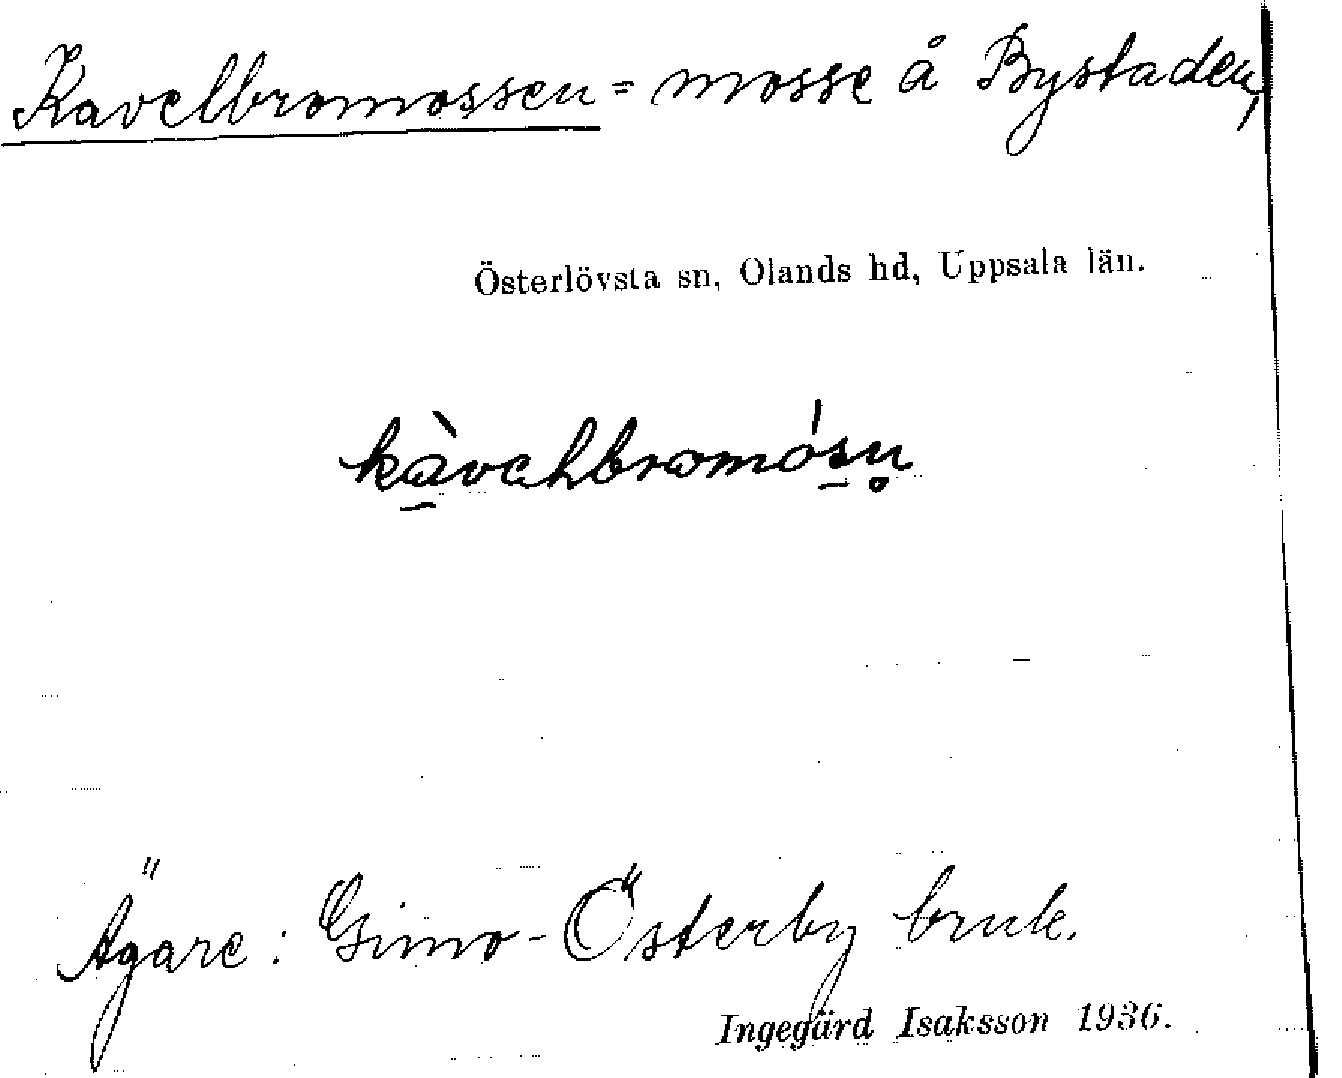 Kavelbromossen = mosse å Bystaden,
Österlövsta sn, Olands hd, Uppsala län.
Ägare: Gimo-Österby bruk.
Ingegärd Isaksson 1936.